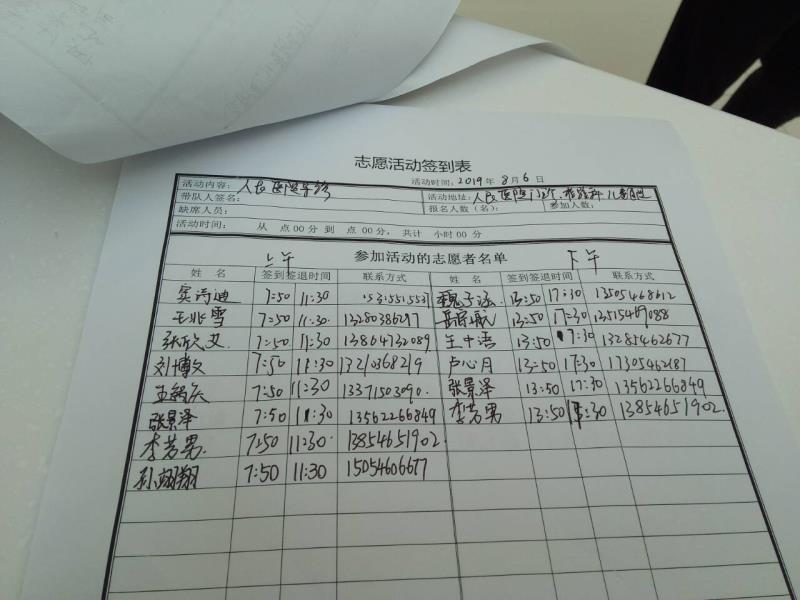 志愿活动签到表
活动时间：2019 年 8 月 6 日
活动内容：人民医院导诊 活动地址：人民医院门诊
带队人签名： 报名人数（名）： 参加人数：
缺席人员：
活动时间： 从 点00分 到 点00分，共计 小时00分
上午 参加活动的志愿者名单 下午
姓 名 签到签退时间 联系方式 姓 名 签到签退时间 联系方式
7:50 11:30 15315515537 魏子涵 13:50 17:30 13505468612
王兆雪 7:50 11:30 13280386297 13:50 17:30
张欣艾 7:50 11:30 13864732089 王中浯 13:50 17:30 13285462677
刘博文 7:50 11:30 卢心月 13:50 17:30 17305462187
7:50 11:30 13371503090 张景泽 13:50 17:30 13562266849
张景泽 7:50 11:30 13562266849 李芳男 13:50 17:30 13854651902
李芳男 7:50 11:30 13854651902
孙翊翔 7:50 11:30 15054606677